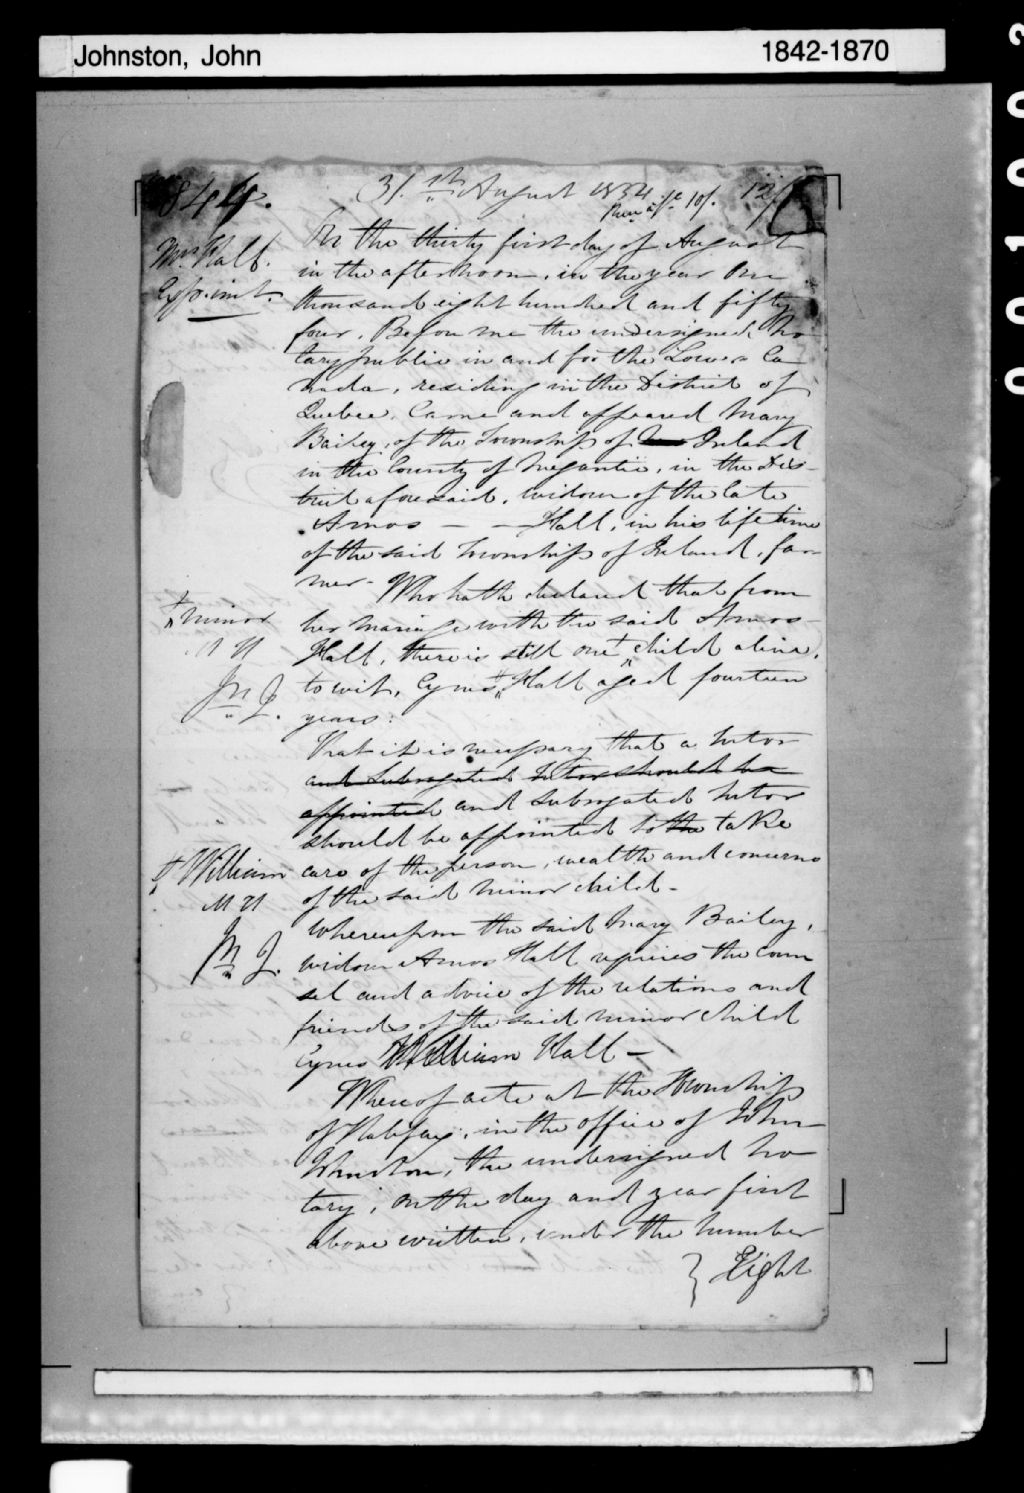 Johnston, John
1842-1870
844.
31.st August 1854
12/
Mrs Hall.
On the thirty first day of August
in the afternoon, in the year One
thousand eight hundred and fifty
four, Before me the undersigned No
tary public in and for the Lower Ca
nada, residing in the District of
Quebec, Came and appeared Mary
Bailey, of the Township of Ireland
in the County of Megantic, in the Dis-
trict aforesaid, widow of the late
Amos — — Hall, in his lifetime
of the said Township of Ireland, far-
mer - Who hath declared that from
her mariage with the said Amos
Hall, there is still one + child alive,
to wit, Cyrus # Hall aged fourteen
years:
+ minor
M H
Jn J.
That it is necessary that a tutor
and subrogated tutor should be
appointed and subrogated tutor
should be appointed to the take
care of the person, wealth and concerns
of the said minor child -
# William
M H
Jn J.
Whereupon the said Mary Bailey,
widow Amos Hall requires the coun
sel and advice of the relations and
friends of the said minor child
Cyrus William Hall —
Whereof acte at the Township
of Halifax, in the office of John
Johnston, the undersigned No
tary, on the day and year first
above written, under the number
} Eight